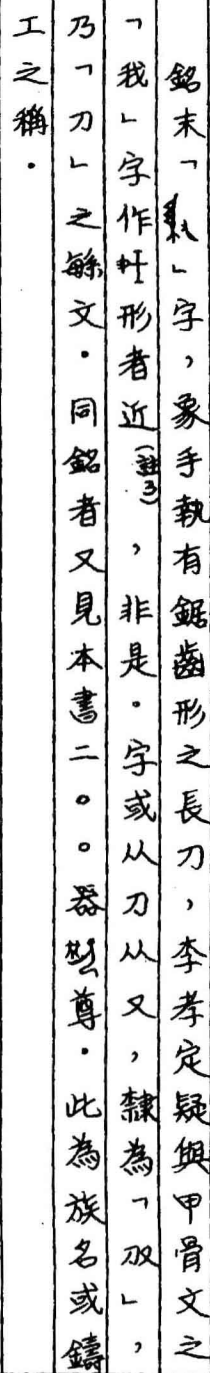 銘末「」字,象手執有鋸齒形之長刀,李孝定疑與甲骨文之
「我」字作形者近(註3),非是.字或从刀从又,隸為「㕞」,
乃「刀」之緐文.同銘者又見本書二○○器尊.此為族名或鑄
工之稱.